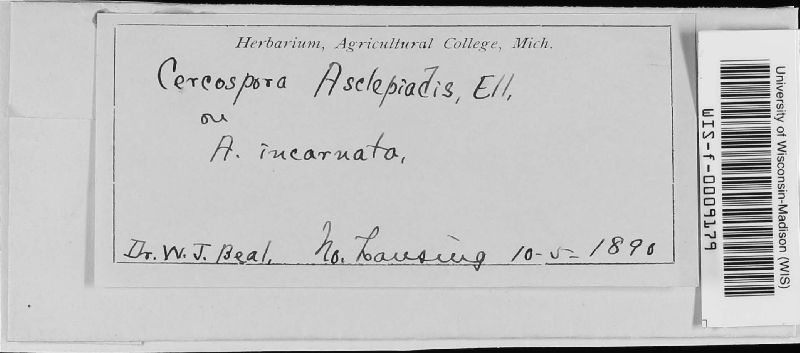 Herbarium, Agricultural College, Mich.
Cercospora Asclepiadis, Ell.
on
A. incarnata,
Dr. W. J. Beal. No. Lansing 10-5-1890
University of Wisconsin-Madison (WIS)
WIS-f-0009179